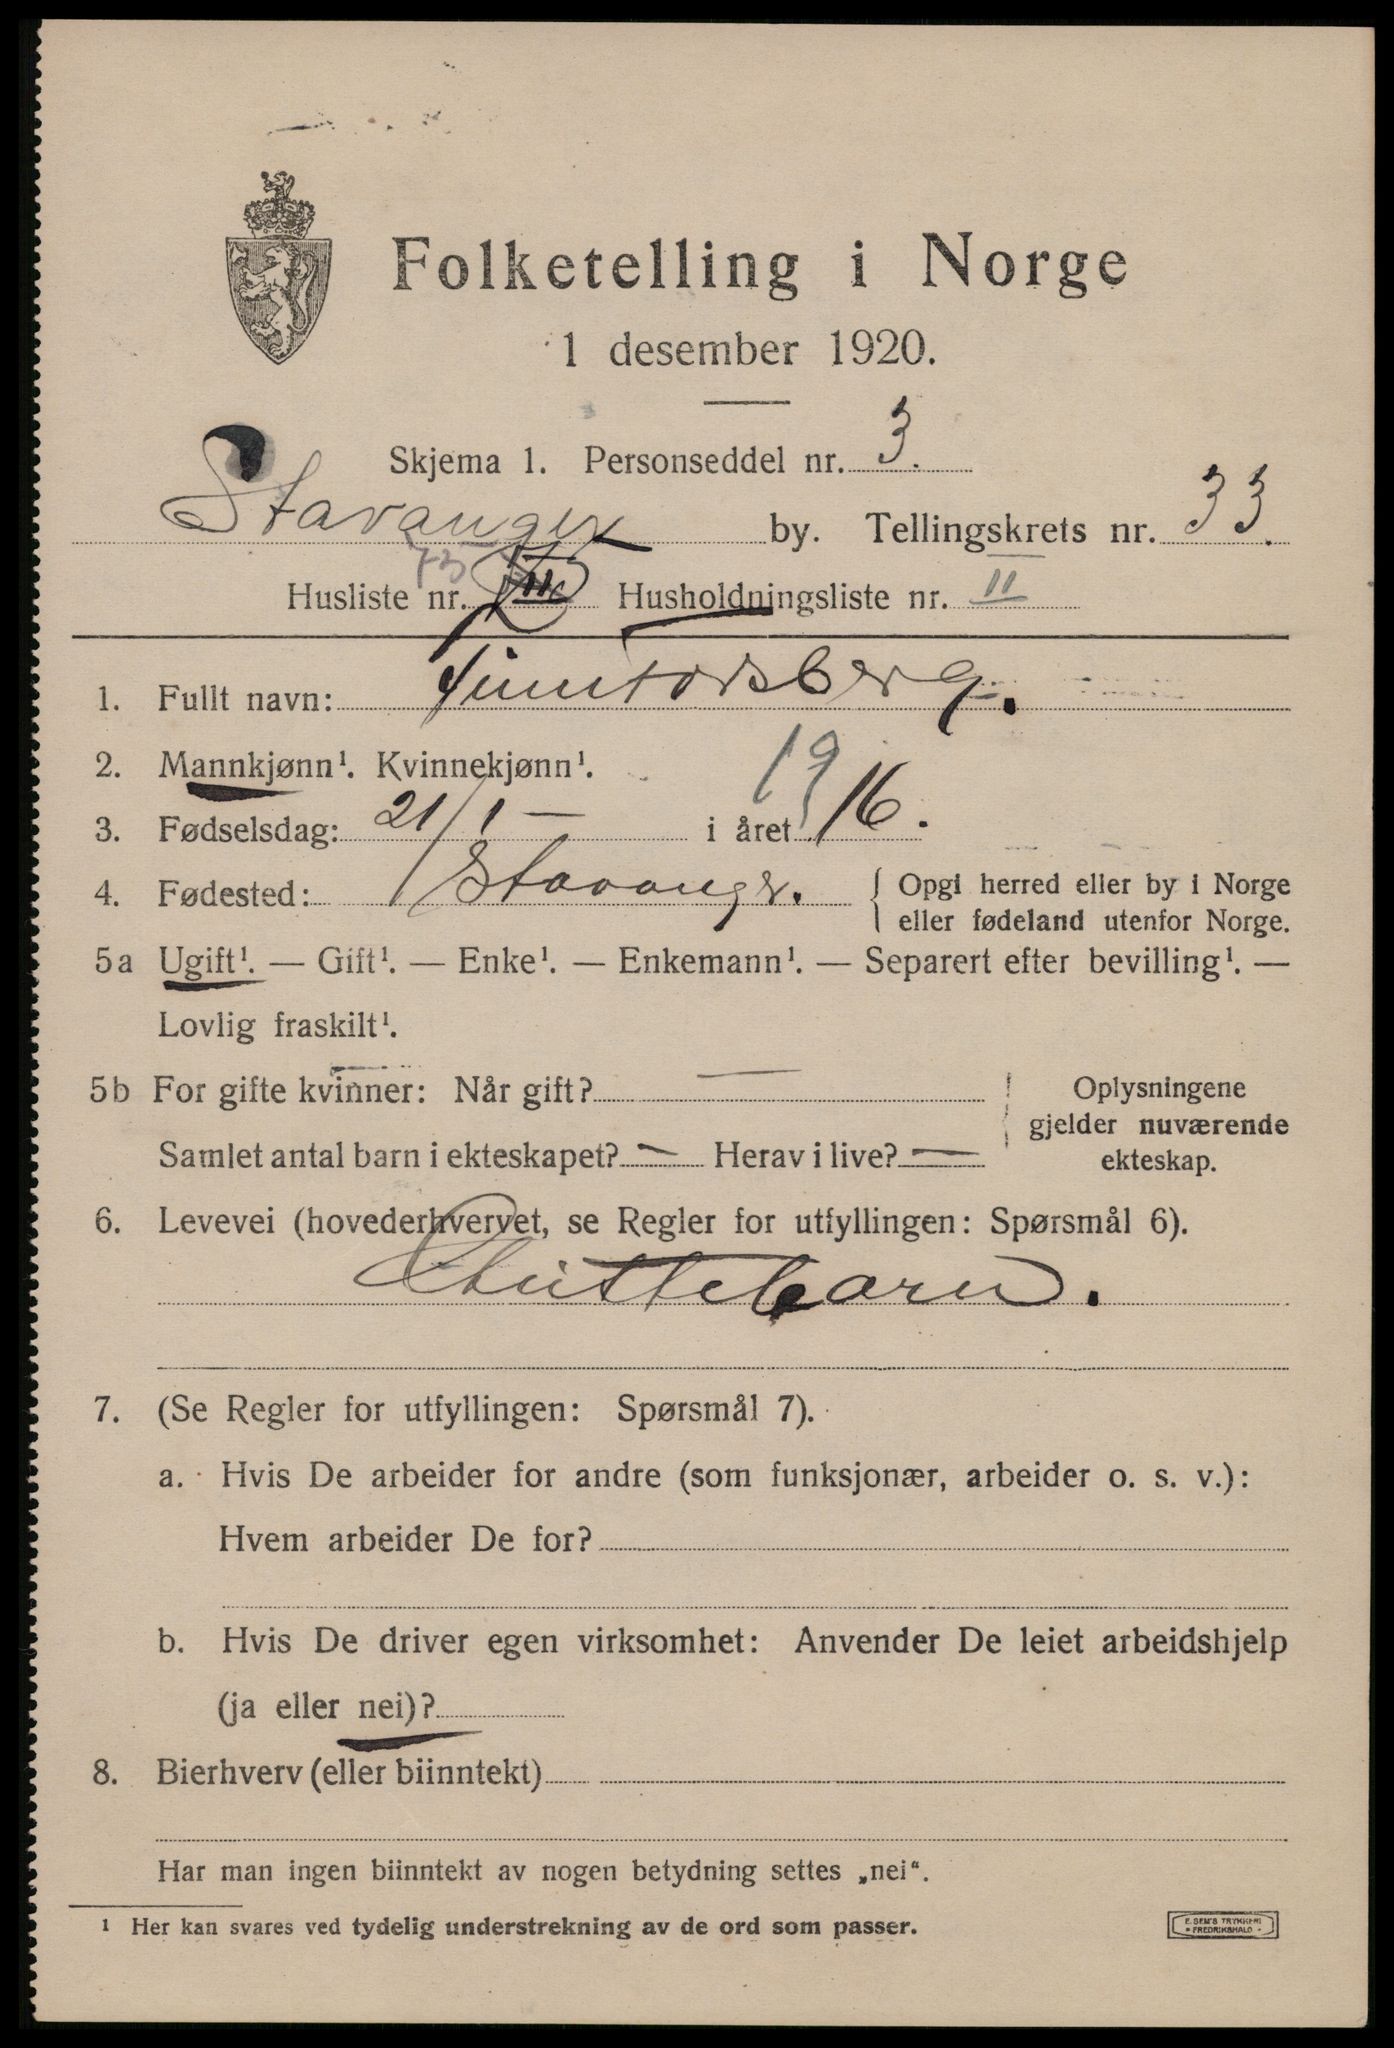 Folketelling i Norge
1 desember 1920.
Skjema 1. Personseddel nr. 3.
Stavanger by. Tellingskrets nr. 33.
Husliste nr. 73 Husholdningsliste nr. II
1. Fullt navn:
2. Mannkjønn¹. Kvinnekjønn¹.
3. Fødselsdag: 21/1 – i året 1916.
4. Fødested: Stavanger. { Opgi herred eller by i Norge
eller fødeland utenfor Norge.
5a Ugift¹. — Gift¹. — Enke¹. — Enkemann¹. — Separert efter bevilling¹. —
Lovlig fraskilt¹.
5b For gifte kvinner: Når gift? —
Samlet antal barn i ekteskapet? — Herav i live? —
Oplysningene
gjelder nuværende
ekteskap.
6. Levevei (hovederhvervet, se Regler for utfyllingen: Spørsmål 6).
7. (Se Regler for utfyllingen: Spørsmål 7).
a. Hvis De arbeider for andre (som funksjonær, arbeider o. s. v.):
Hvem arbeider De for?
b. Hvis De driver egen virksomhet: Anvender De leiet arbeidshjelp
(ja eller nei)?
8. Bierhverv (eller biinntekt)
Har man ingen biinntekt av nogen betydning settes „nei“.
¹ Her kan svares ved tydelig understrekning av de ord som passer.
E. SEM'S TRYKKERI
FREDRIKSHALD